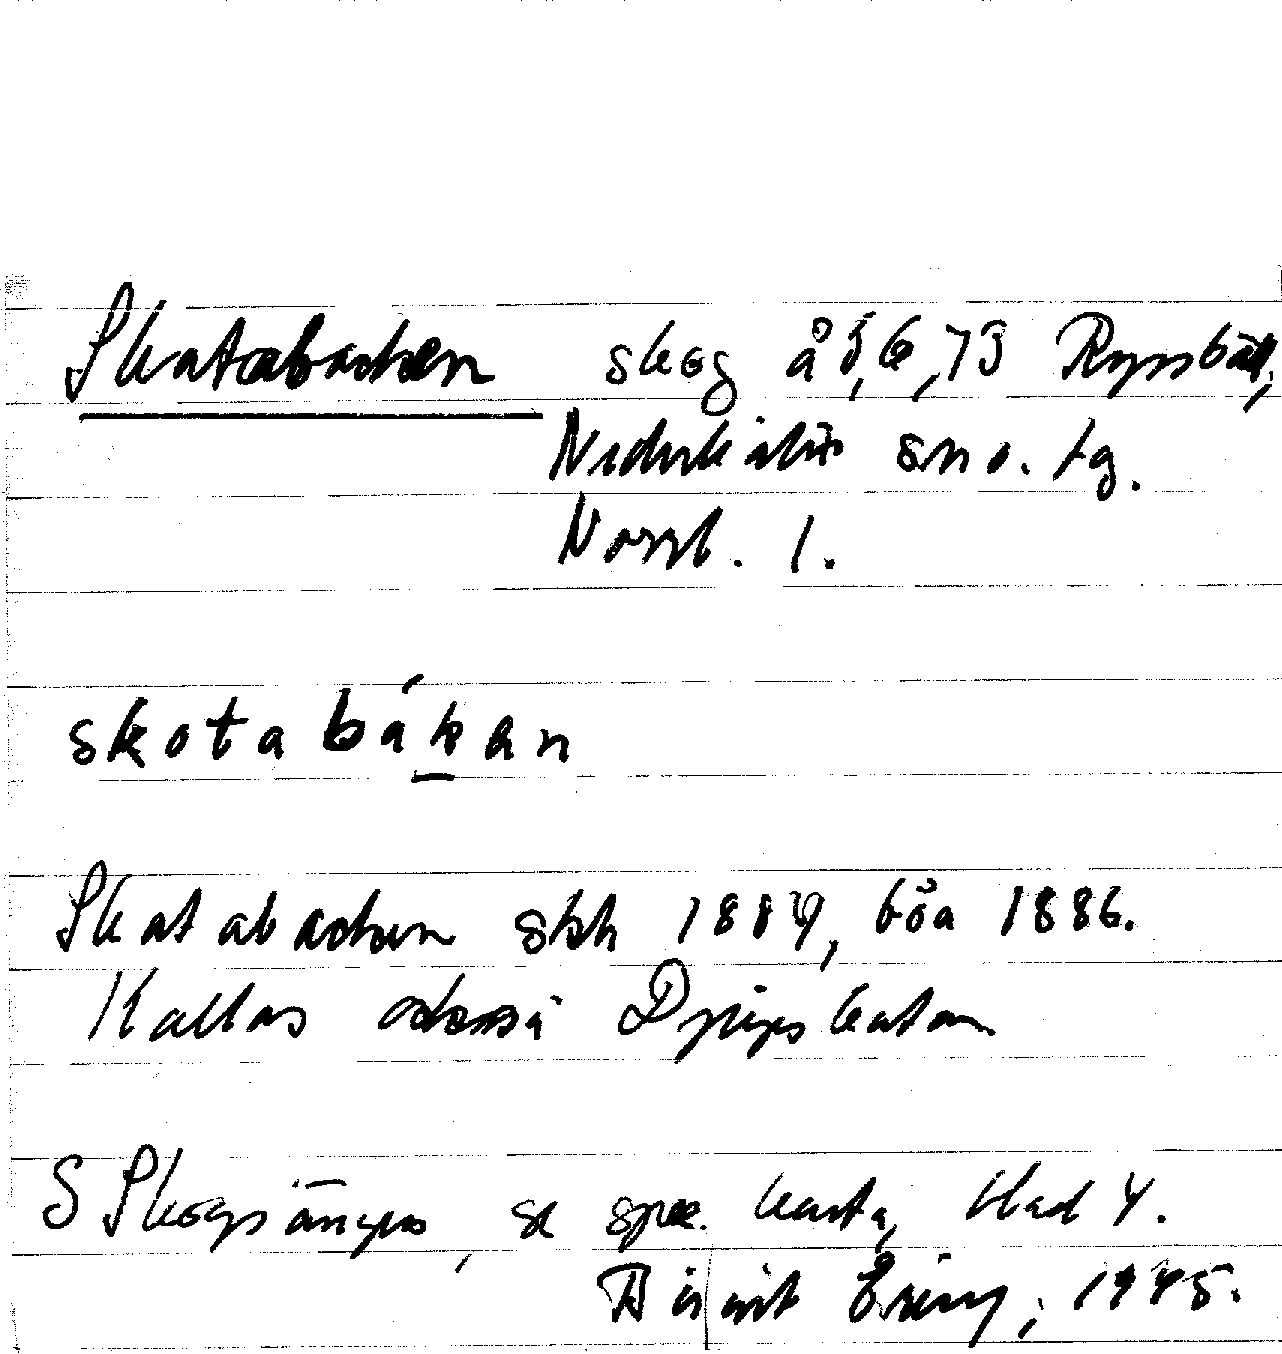 Skatabacken skog å 5, 6, 73 Ryssbält,
Nederkalix sn o. tg.
Norrb. l.
skotabákan
Skatabacken skh 1884, böa 1886.
Kallas också
S Skogsängen, se spec. karta, blad 4.
1945.